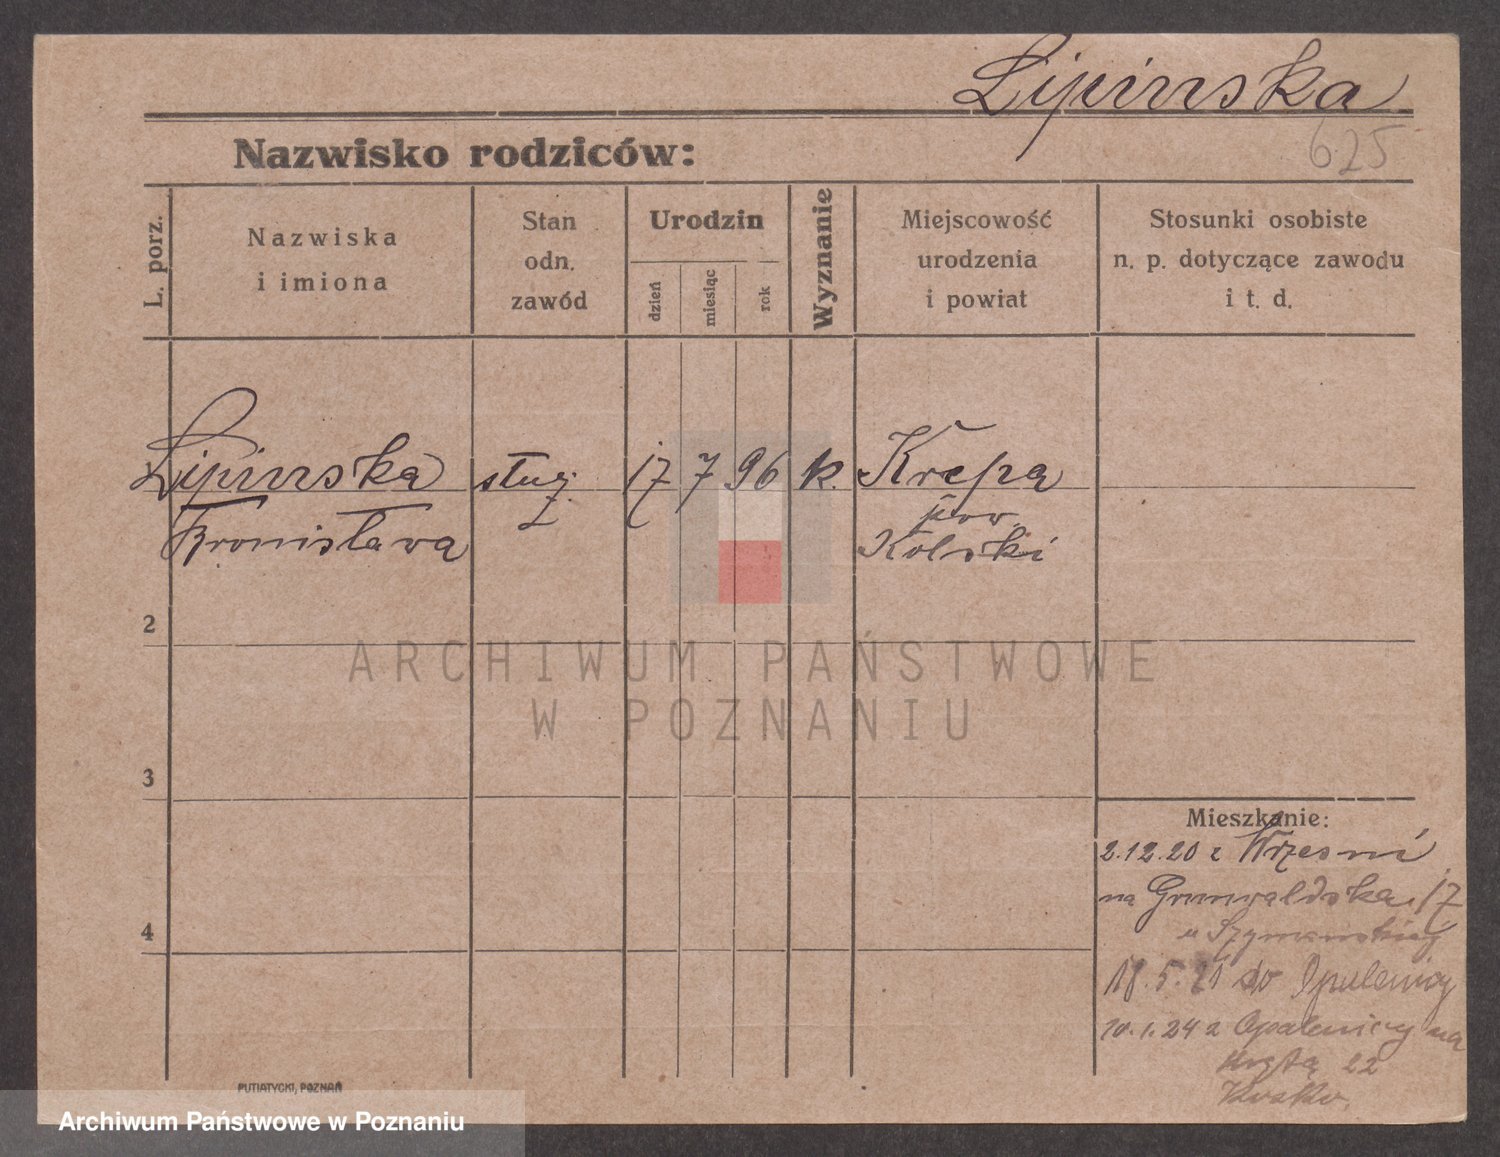 Lipinska
625
Nazwisko rodziców:
L. porz.
Nazwiska
i imiona
Stan
odn.
zawód
Urodzin
dzień
miesiąc
rok
Wyznanie
Miejscowość
urodzenia
i powiat
Stosunki osobiste
n. p. dotyczące zawodu
i t. d.
Lipinska służ. 17 7 96 k. Krępa
Bronisława
pow.
Kolski
2
ARCHIWUM PAŃSTWOWE
W POZNANIU
3
Mieszkanie:
2.12.20 z Wrzesni
na Grunwaldska 17
u Szymanskiej
4
18.5.21 do Opalenicy
10.1.24 z Opalenicy na
22
PUTIATYCKI, POZNAŃ
Archiwum Państwowe w Poznaniu